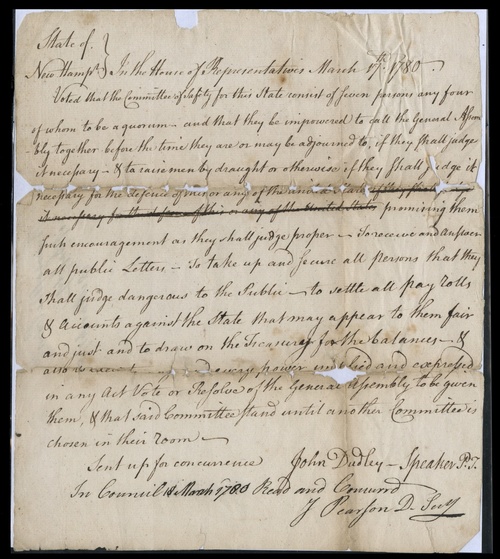 State of }
New Hampr } In the House of Representatives March 17th 1780.
Voted that the Committee of Safety for this State consist of Seven persons any four
of whom to be a quorum - and that they be impowered to call the General Assem
bly together before the time they are or may be adjourned to, if they shall judge
it necessary - & to raise men by draught or otherwise if they shall judge it
necessary for the defence of this or any of the United States
it necessary for the defence of this or any of the United States promising them
such encouragement as they shall judge proper - To receive and answer
all public Letters - To take up and secure all persons that they
shall judge dangerous to the Public - to settle all pay rolls
& accounts against the State that may appear to them fair
and just and to draw on the Treasury for the balances - &
every power implied and expressed
in any Act Vote or Resolve of the General Assembly to be given
them, & that said Committee stand until another Committee is
chosen in their room -
Sent up for concurrence John Dudley - Speaker P.T.
In Council 18 March 1780 Read and Concurrd
J Pearson D. Secy